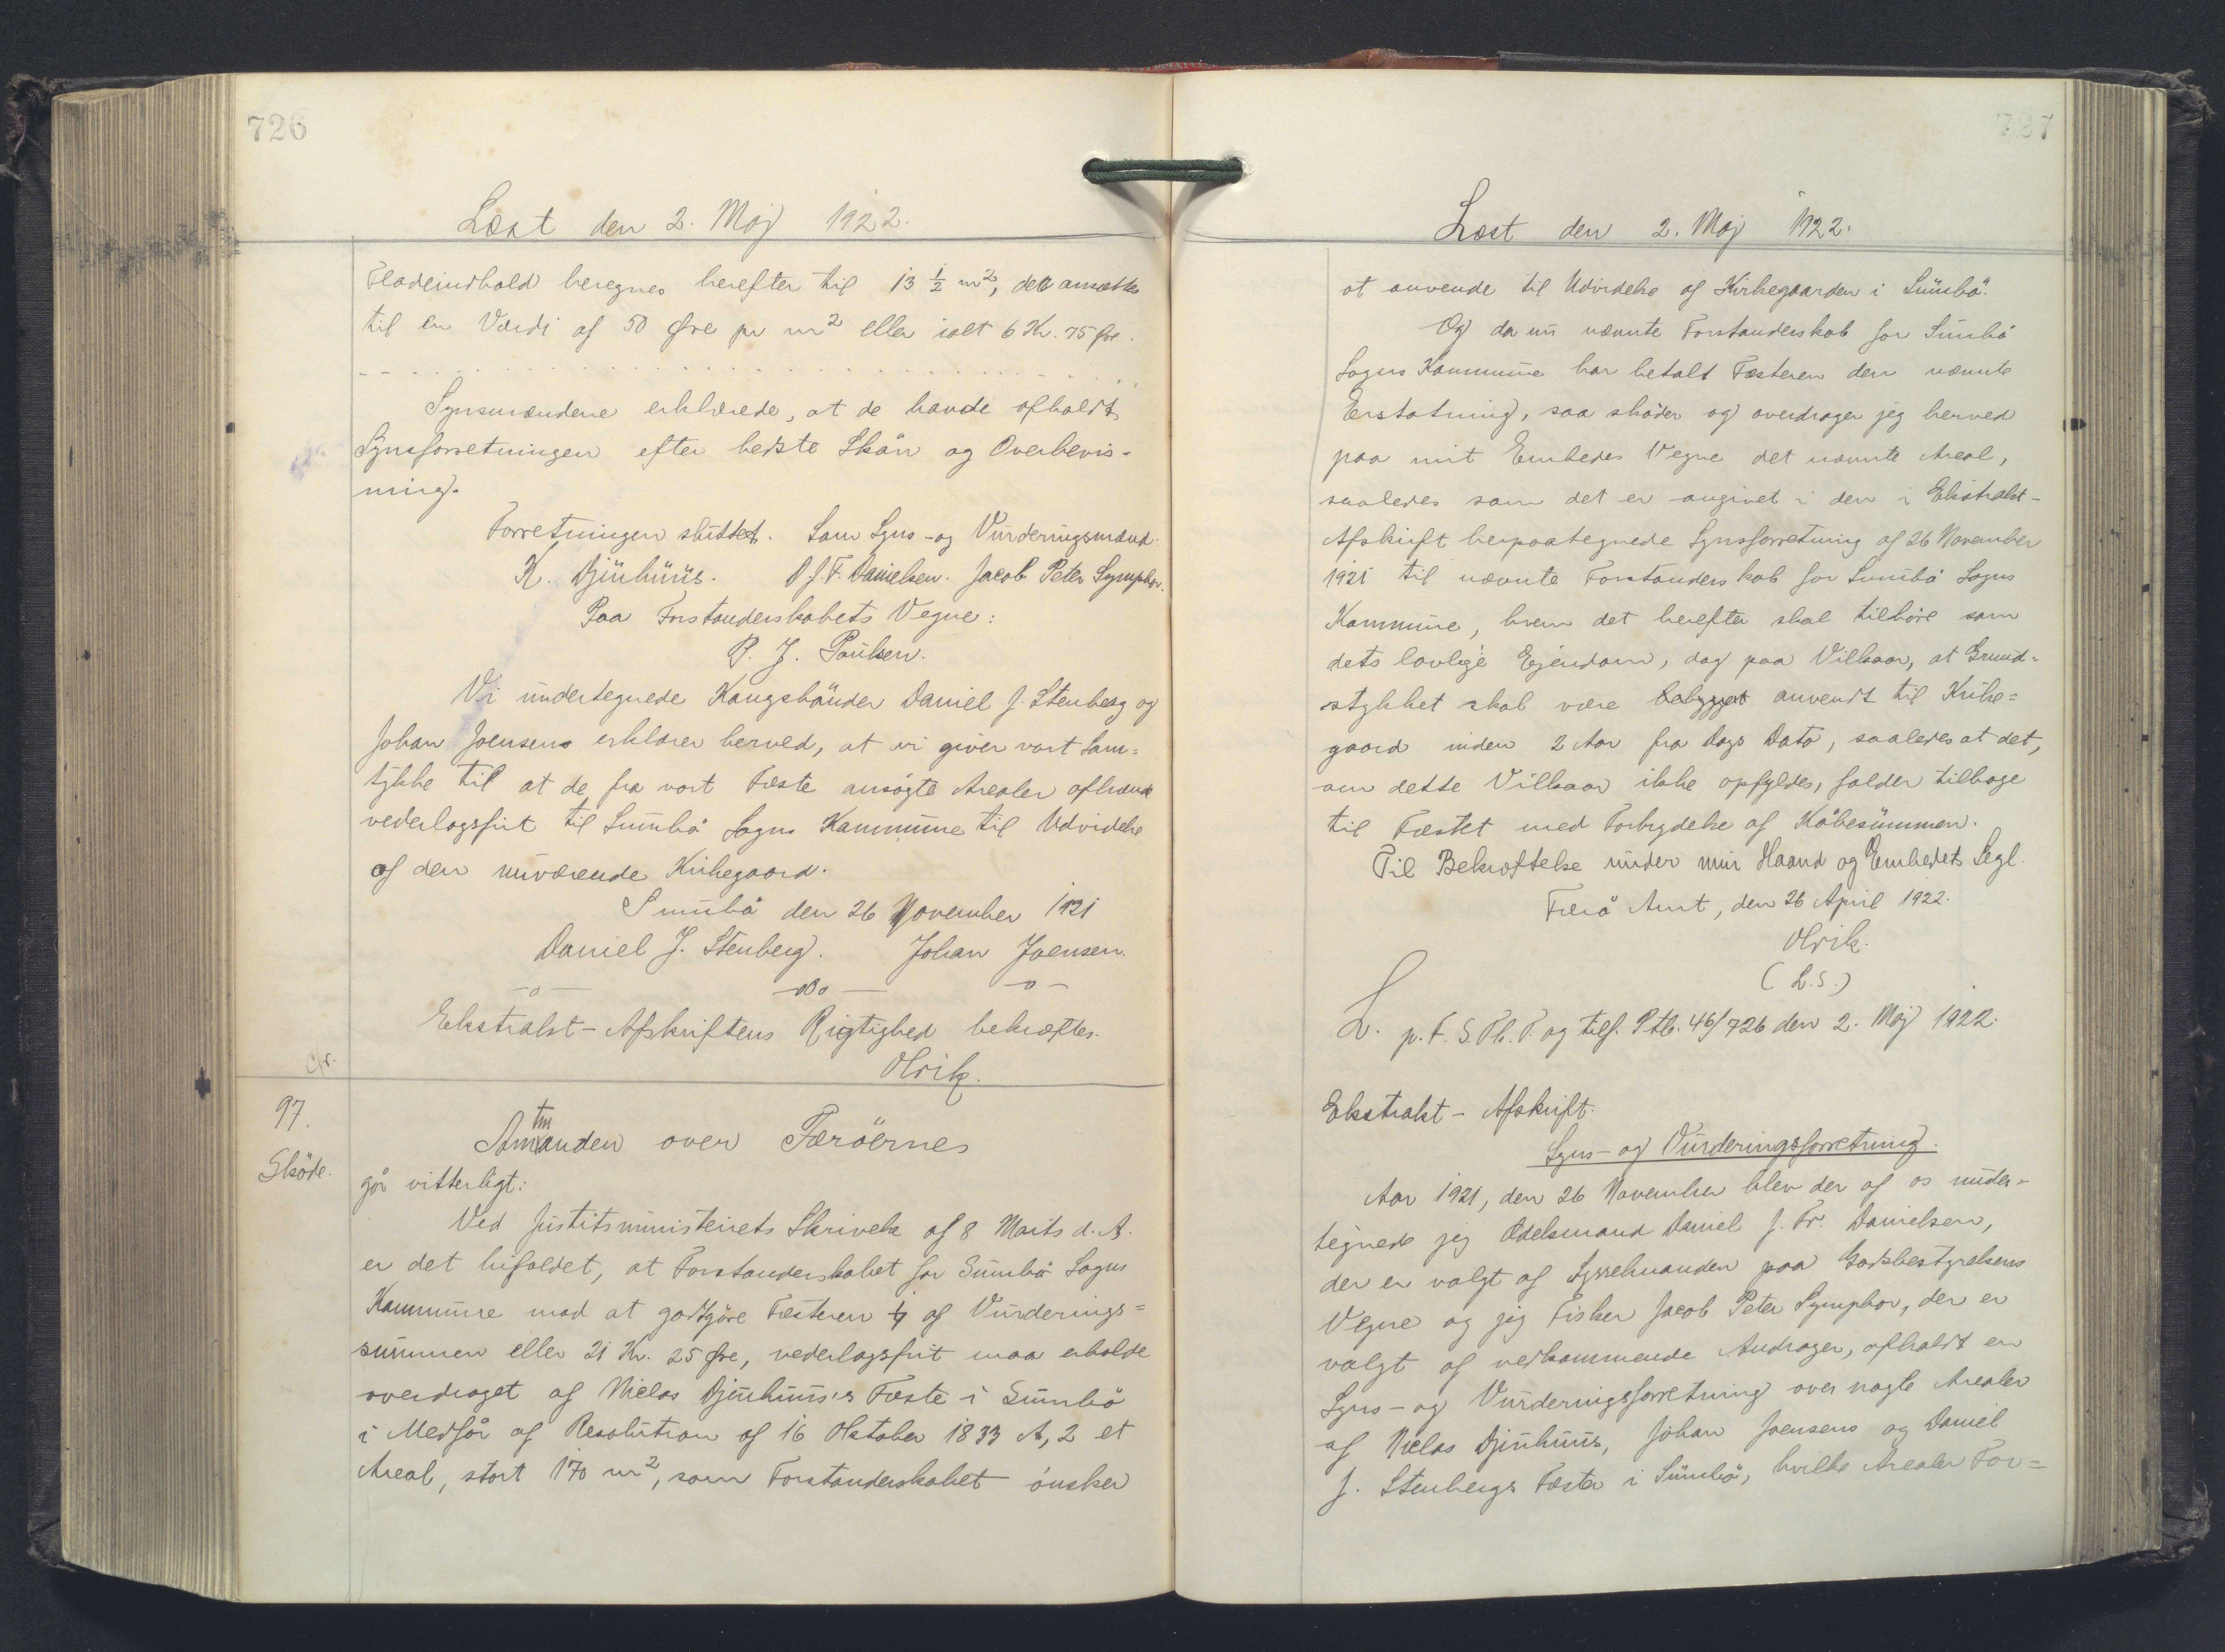 726
Læst den 2. Maj 1922.
Fladeindhold beregnes herefter til 13 ½ m², dets ansættes
til en Værdi af 50 Øre pr m² eller ialt 6 Kr. 75 Øre.
Synsmændene erklærede, at de havde afholdt
Synsforretningen efter bedste Skön og Overbevis-
ning.
Forretningen sluttet. Som Syns- og Vurderingsmænd:
K. Djúrhuus. D. J. F. Danielsen. Jacob Peter Symphor.
Paa Forstanderskabets Vegne:
P. J. Poulsen.
Vi undertegnede Kongsbönder Daniel J. Stenberg og
Johan Joensens erklærer herved, at vi giver vort Sam=
tykke til at de fra vort Fæste ansögte Arealer afhænde
vederlagsfrit til Sumbö Sogns Kommune til Udvidelse
af den nuværende Kirkegaard.
Sumbö den 26 November 1921
Daniel J. Stenberg. Johan Joensen.
—o— —o0o— —o—
Ekstrakt-Afskriftens Rigtighed bekræftes.
Olrik.
Cfr.
97.
Sköde.
Amtmanden over Færöernes
gör vitterligt:
Ved Justitsministeriets Skrivelse af 8 Marts d. A.
er det bifaldet, at Forstanderskabet for Sumbö Sogns
Kommune mod at godtgöre Fæsteren ¼ af Vurderings=
summen eller 21 Kr. 25 Øre, vederlagsfrit maa erholde
overdraget af Niclas Djurhuus's Fæste i Sumbö
i Medför af Resolution af 16 Oktober 1833 A, 2 et
Areal, stort 170 m², som Forstanderskabet önsker
727
Læst den 2. Maj 1922.
at anvende til Udvidelse af Kirkegaarden i Sumbö.
Og da nu nævnte Forstanderskab for Sumbö
Sogns Kommune har betalt Fæsteren den nævnte
Erstatning, saa sköder og overdrager jeg herved
paa mit Embedes Vegne det nævnte Areal,
saaledes som det er angivet i den i Ekstrakt-
Afskrift herpaategnede Synsforretning af 26 November
1921 til nævnte Forstanderskab for Sumbö Sogns
Kommune, hvem det herefter skal tilhöre som
dets lovlige Ejendom, dog paa Vilkaar, at Grund=
stykket skal være bebygget anvendt til Kirke=
gaard inden 2 Aar fra Dags Dato, saaledes at det,
om dette Vilkaar ikke opfyldes, falder tilbage
til Fæstet med Forbrydelse af Köbesummen.
Til Bekræftelse under min Haand og Embedets Segl.
Færö Amt, den 26 April 1922.
Olrik.
(L.S.)
L. p. F. S. Th. P. og tilf. Ptb. 46/726 den 2. Maj 1922.
Ekstrakt-Afskrift.
Syns- og Vurderingsforretning.
Aar 1921, den 26 November blev der af os under-
tegnede jeg Odelsmand Daniel J. Fr. Danielsen,
der er valgt af Sysselmanden paa Godsbestyrelsens
Vegne og jeg Fisker Jacob Peter Symphor, der er
valgt af vedkommende Andrager, afholdt en
Syns- og Vurderingsforretning over nogle Arealer
af Niclas Djurhuus, Johan Joensens og Daniel
J. Stenbergs Fæster i Sumbö, hvilke Arealer For=